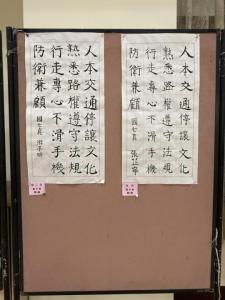 人本交通停讓文化
熟悉路權遵守法規
行走專心不滑手機
防衛兼顧
國七貞
人本交通停讓文化
熟悉路權遵守法規
行走專心不滑手機
防衛兼顧
國七真